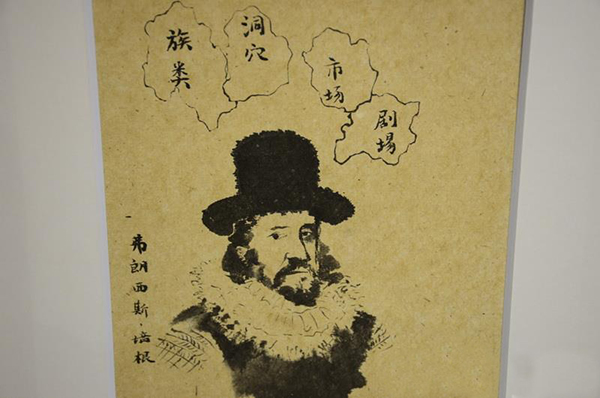 族类
洞穴
市场
剧場
弗朗西斯·培根